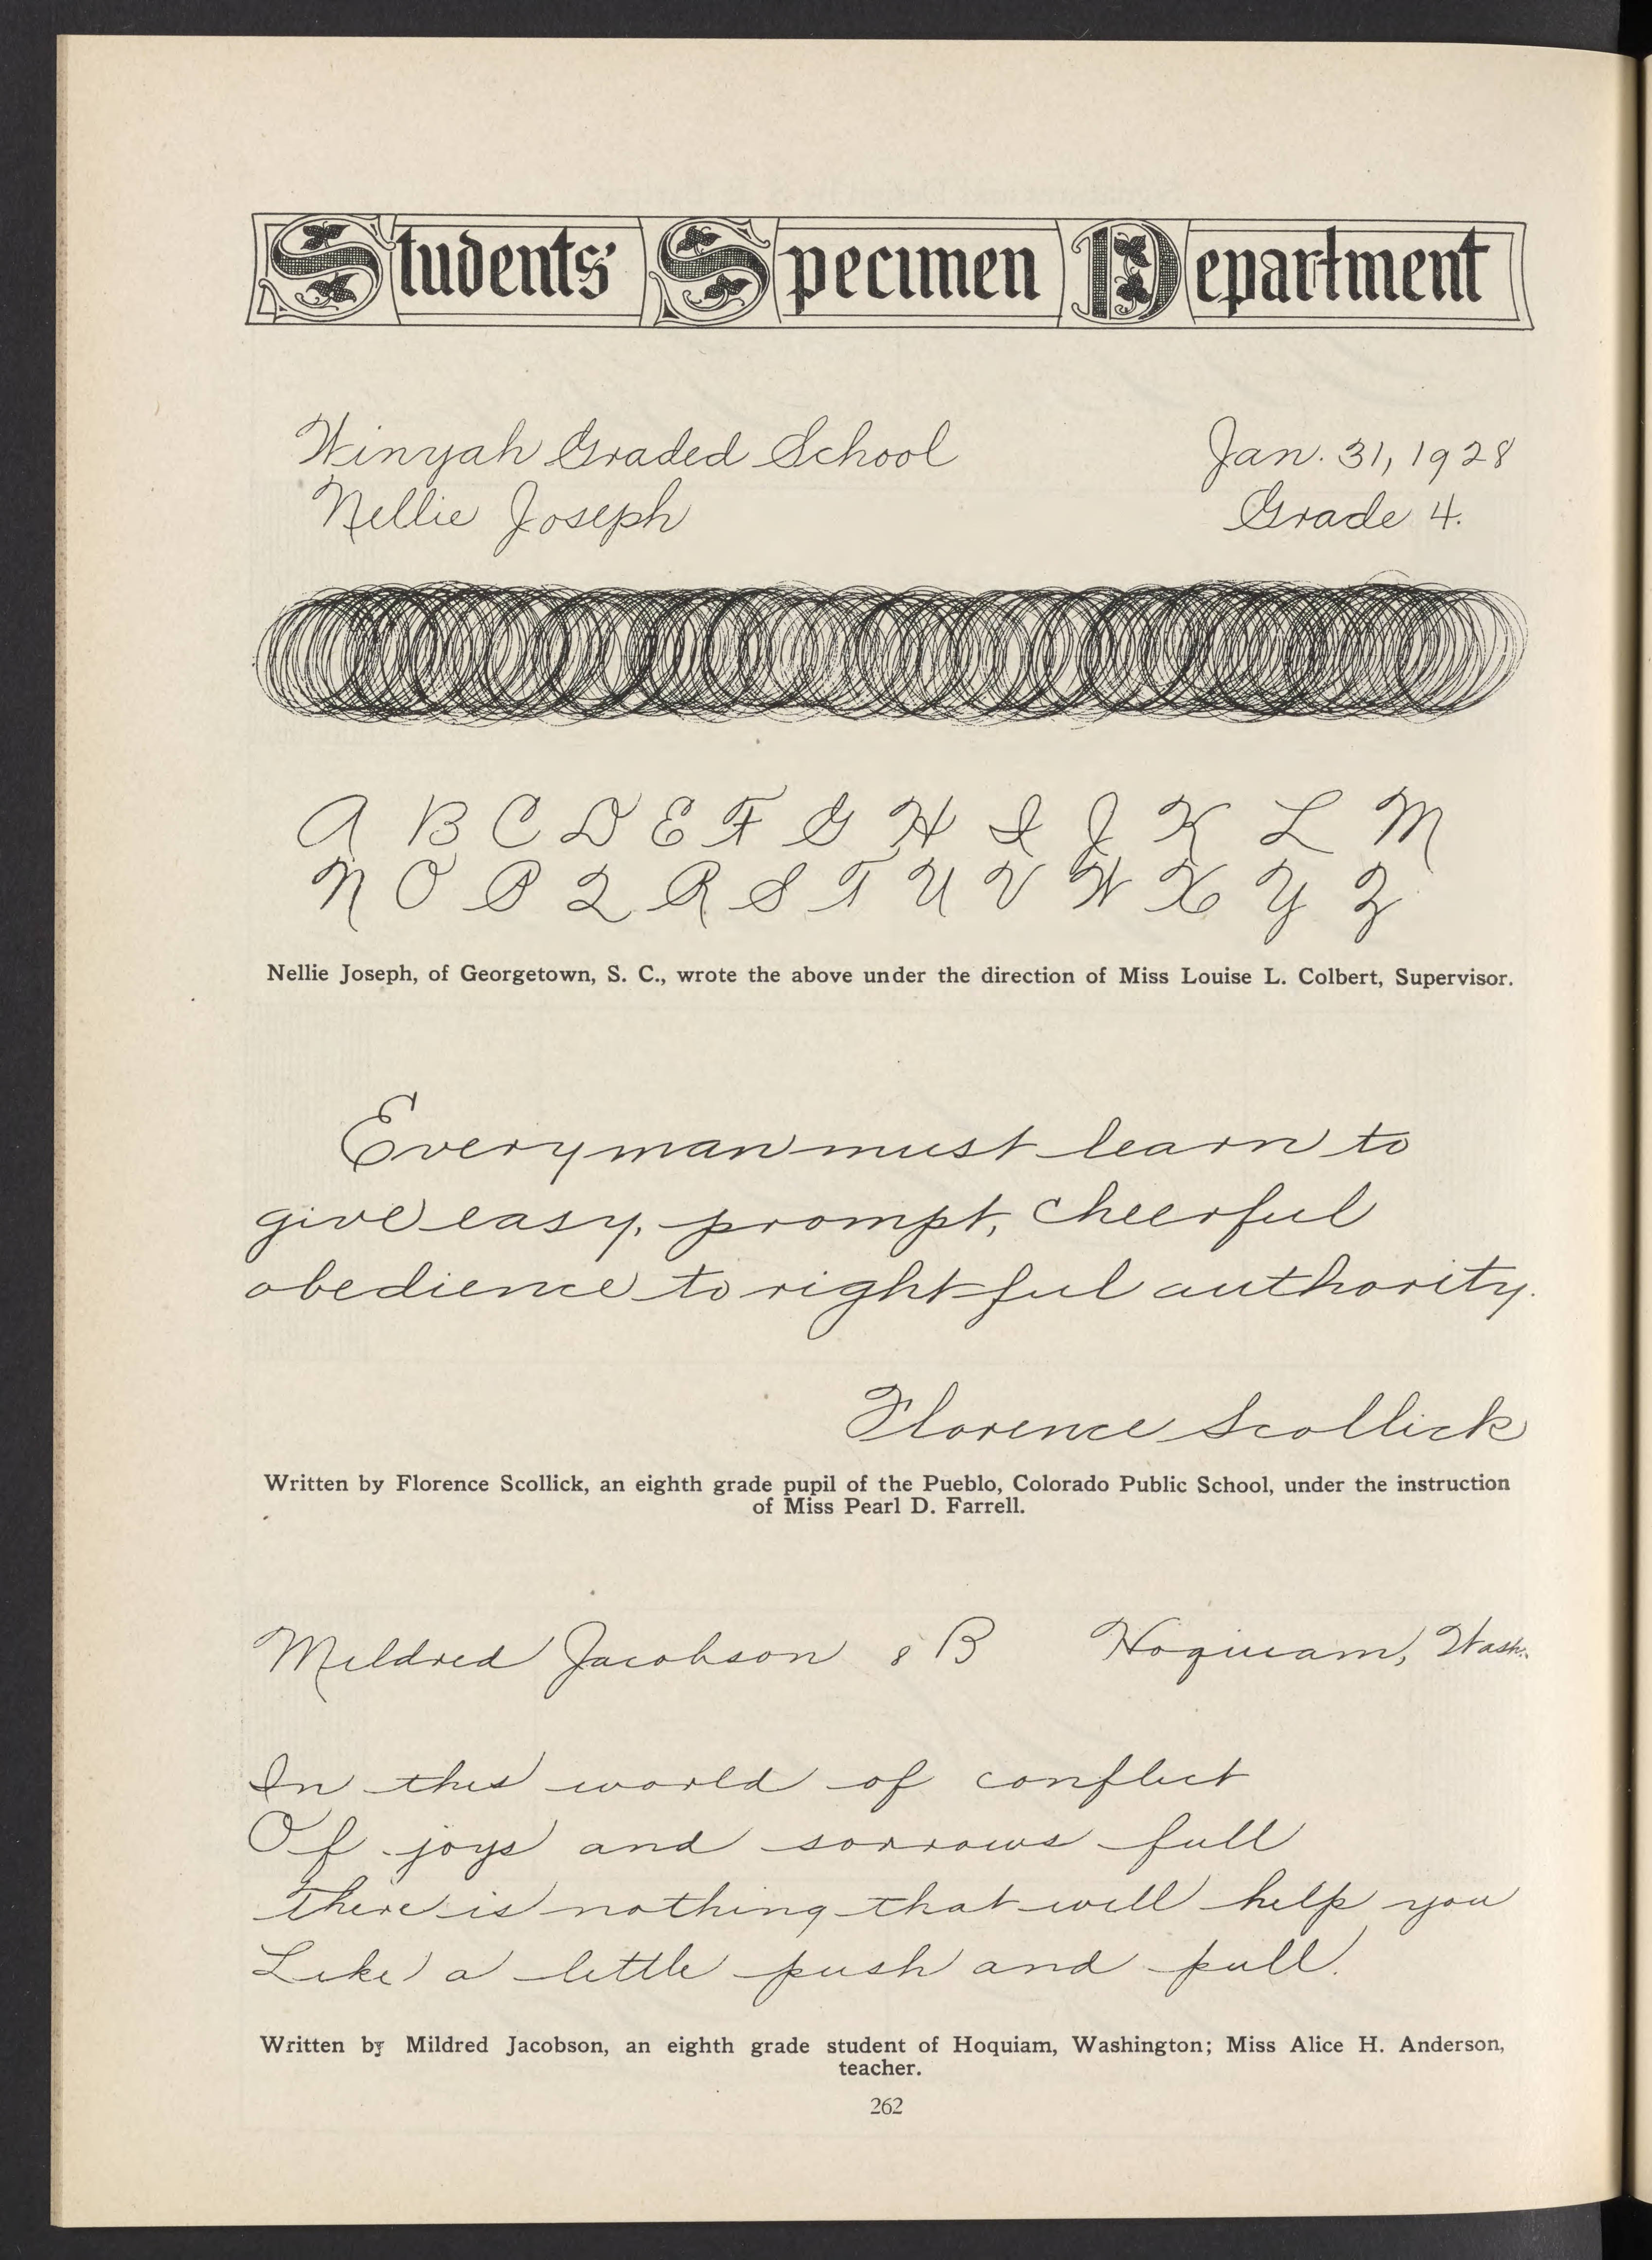 Students' Specimen Department
Winyah Graded School Jan. 31, 1928
Nellie Joseph Grade 4.
A B C D E F G H I J K L M
N O P Q R S T U V W X Y Z
Nellie Joseph, of Georgetown, S. C., wrote the above under the direction of Miss Louise L. Colbert, Supervisor.
Every man must learn to
give easy, prompt, cheerful
obedience to rightful authority.
Florence Scollick
Written by Florence Scollick, an eighth grade pupil of the Pueblo, Colorado Public School, under the instruction
of Miss Pearl D. Farrell.
Mildred Jacobson 8 B Hoquiam, Wash.
In this world of conflict
Of joys and sorrows full
There is nothing that will help you
Like a little push and pull.
Written by Mildred Jacobson, an eighth grade student of Hoquiam, Washington; Miss Alice H. Anderson,
teacher.
262